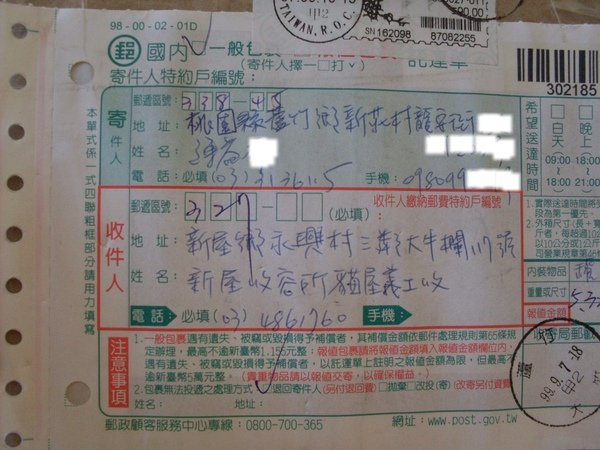 98-00-02-01D
TAIWAN, R.O.C.
SN 162098 87082255
國內 一般包裹 託運單
寄件人特約戶編號: (寄件人擇一□打ˇ)
302185
本單式係一式四聯粗框部分請用力填寫
寄件人
郵遞區號: 338-45
地址: 桃園縣蘆竹鄉新莊村龍安街
姓名:
電話: 必填(03) 手機: 098099
希望送達時
白天 晚上
09:00 18:00
18:00 21:00
收件人
郵遞區號: 327 (必填:
收件人繳納郵費特約戶編號
地址: 新屋鄉永興村三鄰大牛欄117號
姓名: 新屋收容所貓屋義工收
電話: 必填(03) 4861760 手機:
內裝物品
重量或尺寸
報值金額
收寄局郵
注意事項
1.一般包裹遇有遺失、被竊或毀損得予補償者,其補償金額依郵件處理規則第65條規定辦理,最高不逾新臺幣1,155元整。報值包裹請將報值金額填入報值金額欄位內,遇有遺失、被竊或毀損得予補償者,以託運單上註明之報值金額為限,但最高不逾新臺幣5萬元整。(貴重物品請以報值交寄,以確保權益。)
2.包裹無法投遞之處理方式 □退回寄件人(另付退回費) □拋棄 □改投(寄) (改寄另付資費
姓名: 地址:
郵政顧客服務中心專線: 0800-700-365 網址: www.post.gov.tw
99.9.7-18